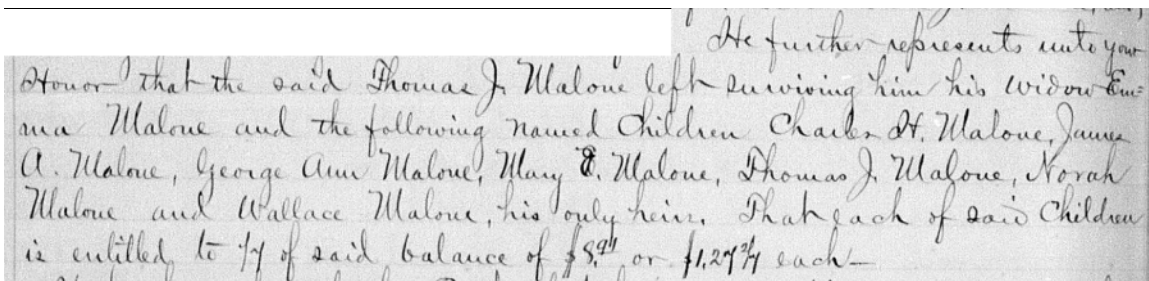 He further represents unto your
Honor that the said Thomas J. Malone left surviving him his widow Em=
ma Malone and the following named Children Charles H. Malone, James
A. Malone, George Ann Malone, Mary E. Malone, Thomas J. Malone, Norah
Malone and Wallace Malone, his only heirs. That each of said Children
is entitled to 1/7 of said balance of $8.91 or $1.27 2/7 each—